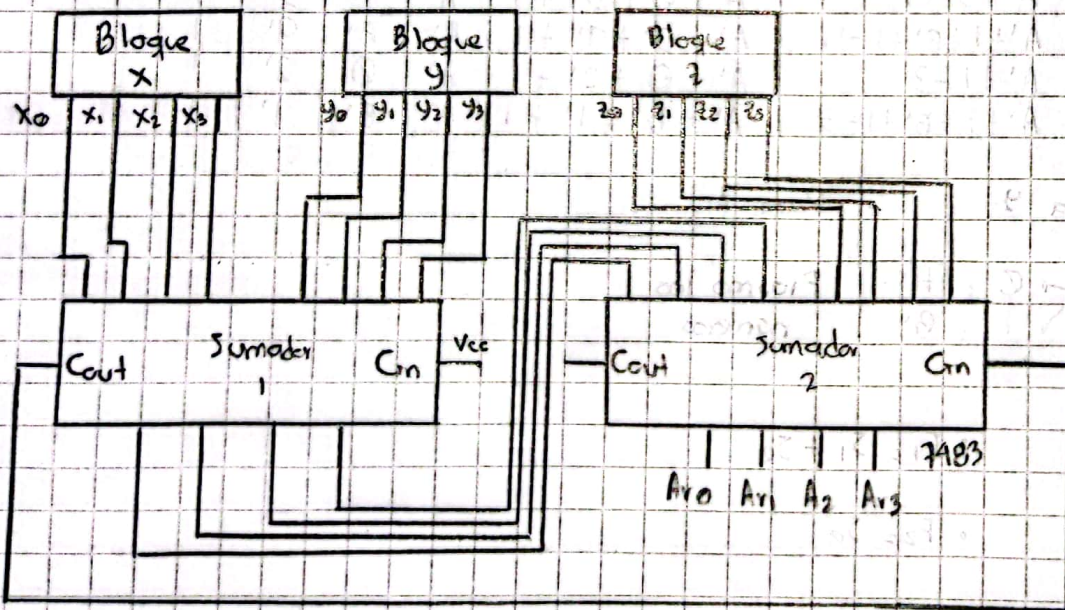 Bloque
X
Bloque
y
Bloque
z
X0 X1 X2 X3
y0 y1 y2 y3
z0 z1 z2 z3
Cout
Sumador
1
Cin
Vcc
Cout
Sumador
2
Cin
7483
Ar0 Ar1 A2 Ar3